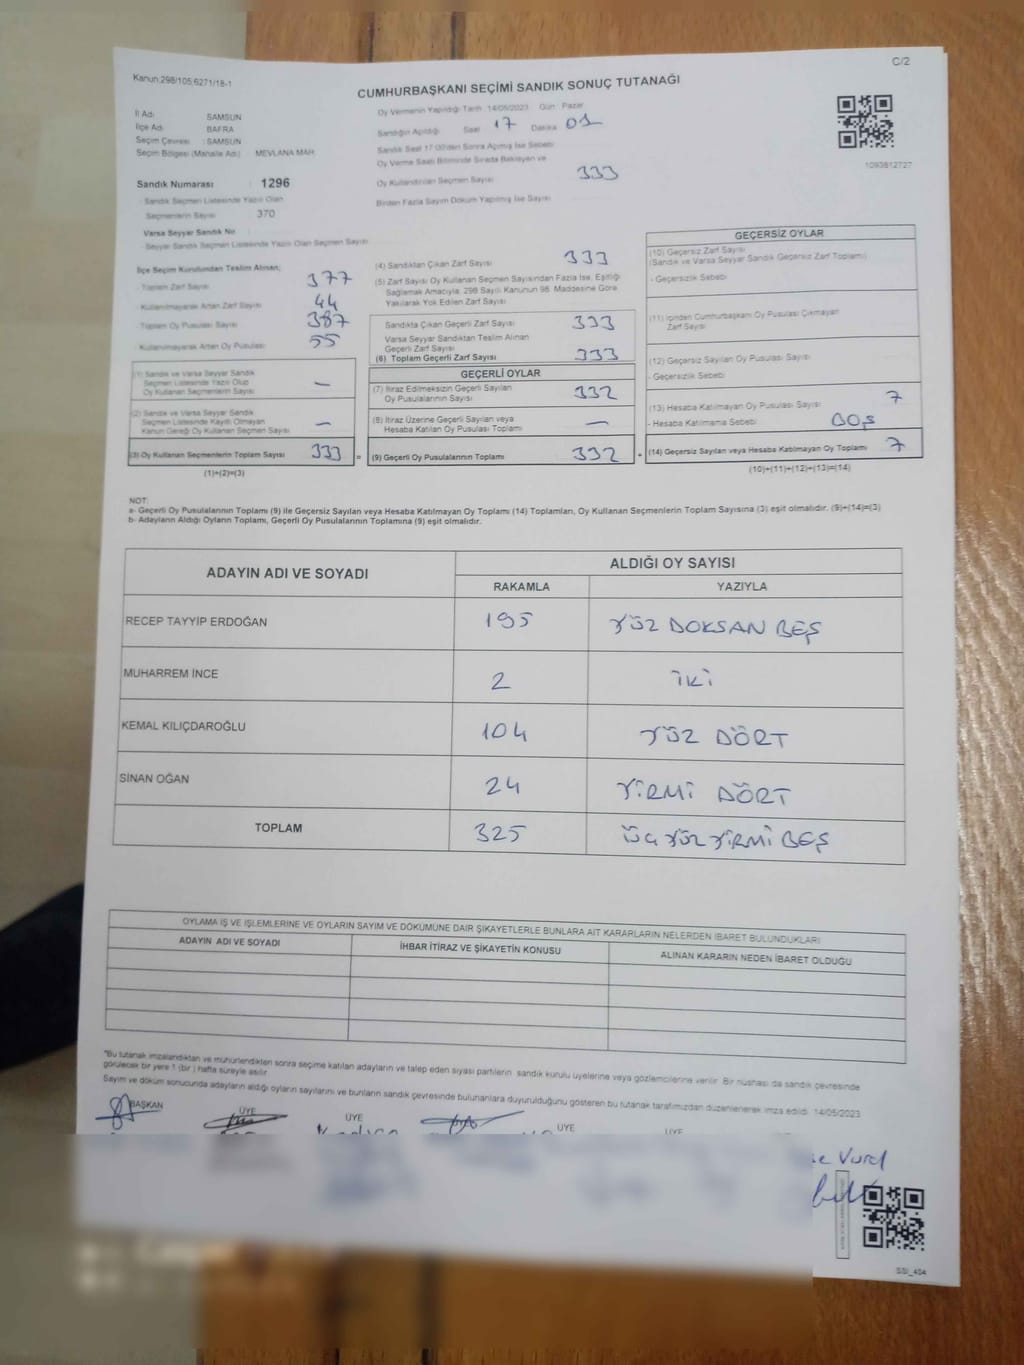 C/2
Kanun:298/105;6271/18-1
CUMHURBAŞKANI SEÇİMİ SANDIK SONUÇ TUTANAĞI
İl Adı SAMSUN
İlçe Adı BAFRA
Seçim Çevresi : SAMSUN
Seçim Bölgesi (Mahalle Adı) MEVLANA MAH
Oy Vermenin Yapıldığı Tarih 14/05/2023 Gün Pazar
Sandığın Açıldığı Saat 17 Dakika 01
Sandık Saat 17:00'den Sonra Açılmış İse Sebebi
Oy Verme Saati Bitiminde Sırada Bekleyen ve
Oy Kullandırılan Seçmen Sayısı 333
Birden Fazla Sayım Döküm Yapılmış İse Sayısı
1093812727
Sandık Numarası : 1296
Sandık Seçmen Listesinde Yazılı Olan
Seçmenlerin Sayısı 370
Varsa Seyyar Sandık No
- Seyyar Sandık Seçmen Listesinde Yazılı Olan Seçmen Sayısı
İlçe Seçim Kurulundan Teslim Alınan;
- Toplam Zarf Sayısı 377
- Kullanılmayarak Artan Zarf Sayısı 44
- Toplam Oy Pusulası Sayısı 387
- Kullanılmayarak Artan Oy Pusulası 55
(1) Sandık ve Varsa Seyyar Sandık
Seçmen Listesinde Yazılı Olup
Oy Kullanan Seçmenlerin Sayısı —
(2) Sandık ve Varsa Seyyar Sandık
Seçmen Listesinde Kaydı Olmayan
Kanun Gereği Oy Kullanan Seçmen Sayısı —
(3) Oy Kullanan Seçmenlerin Toplam Sayısı 333 =
(1)+(2)=(3)
(4) Sandıktan Çıkan Zarf Sayısı 333
(5) Zarf Sayısı Oy Kullanan Seçmen Sayısından Fazla İse, Eşitliği
Sağlamak Amacıyla; 298 Sayılı Kanunun 98. Maddesine Göre
Yakılarak Yok Edilen Zarf Sayısı
Sandıkta Çıkan Geçerli Zarf Sayısı 333
Varsa Seyyar Sandıktan Teslim Alınan
Geçerli Zarf Sayısı
(6) Toplam Geçerli Zarf Sayısı 333
GEÇERLİ OYLAR
(7) İtiraz Edilmeksizin Geçerli Sayılan
Oy Pusulalarının Sayısı 332
(8) İtiraz Üzerine Geçerli Sayılan veya
Hesaba Katılan Oy Pusulası Toplamı —
(9) Geçerli Oy Pusulalarının Toplamı 332 +
GEÇERSİZ OYLAR
(10) Geçersiz Zarf Sayısı
(Sandık ve Varsa Seyyar Sandık Geçersiz Zarf Toplamı)
- Geçersizlik Sebebi
(11) İçinden Cumhurbaşkanı Oy Pusulası Çıkmayan
Zarf Sayısı
(12) Geçersiz Sayılan Oy Pusulası Sayısı
- Geçersizlik Sebebi
(13) Hesaba Katılmayan Oy Pusulası Sayısı 7
- Hesaba Katılmama Sebebi BOŞ
(14) Geçersiz Sayılan veya Hesaba Katılmayan Oy Toplamı 7
(10)+(11)+(12)+(13)=(14)
NOT:
a- Geçerli Oy Pusulalarının Toplamı (9) ile Geçersiz Sayılan veya Hesaba Katılmayan Oy Toplamı (14) Toplamları, Oy Kullanan Seçmenlerin Toplam Sayısına (3) eşit olmalıdır. (9)+(14)=(3)
b- Adayların Aldığı Oyların Toplamı, Geçerli Oy Pusulalarının Toplamına (9) eşit olmalıdır.
ADAYIN ADI VE SOYADI ALDIĞI OY SAYISI
RAKAMLA YAZIYLA
RECEP TAYYİP ERDOĞAN 195 YÜZ DOKSAN BEŞ
MUHARREM İNCE 2 İKİ
KEMAL KILIÇDAROĞLU 104 YÜZ DÖRT
SİNAN OĞAN 24 YİRMİ DÖRT
TOPLAM 325 ÜÇ YÜZ YİRMİ BEŞ
OYLAMA İŞ VE İŞLEMLERİNE VE OYLARIN SAYIM VE DÖKÜMÜNE DAİR ŞİKAYETLERLE BUNLARA AİT KARARLARIN NELERDEN İBARET BULUNDUKLARI
ADAYIN ADI VE SOYADI İHBAR İTİRAZ VE ŞİKAYETİN KONUSU ALINAN KARARIN NEDEN İBARET OLDUĞU
"Bu tutanak imzalandıktan ve mühürlendikten sonra seçime katılan adayların ve talep eden siyasi partilerin sandık kurulu üyelerine veya gözlemcilerine verilir. Bir nüshası da sandık çevresinde
görülecek bir yere 1 (bir) hafta süreyle asılır.
Sayım ve döküm sonucunda adayların aldığı oyların sayılarını ve bunların sandık çevresinde bulunanlara duyurulduğunu gösteren bu tutanak tarafımızdan düzenlenerek imza edildi. 14/05/2023
BAŞKAN ÜYE ÜYE ÜYE ÜYE
SSI_404